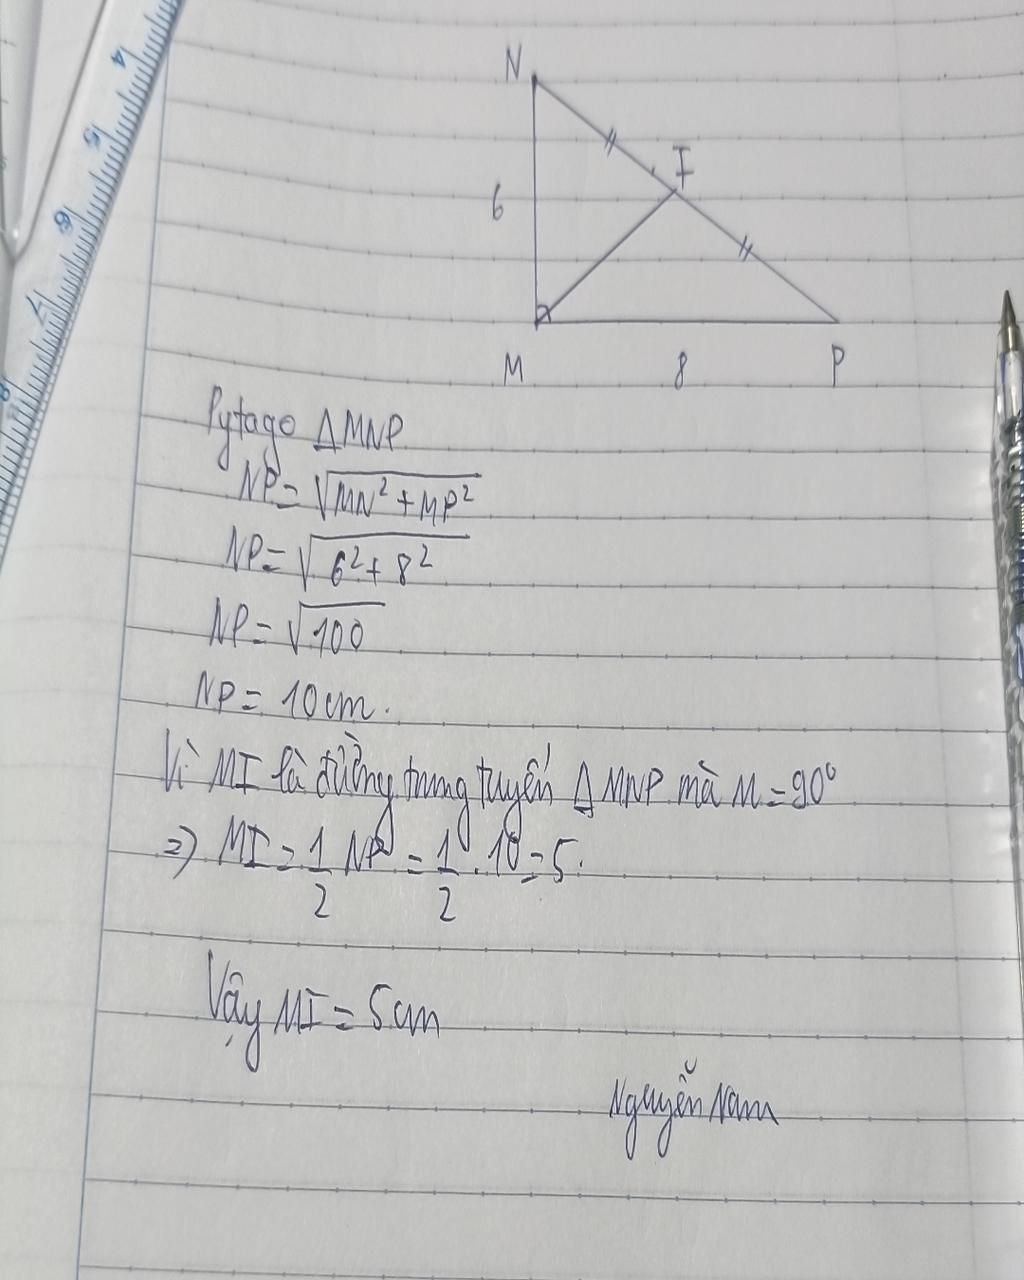 N
I
6
M
8
P
Pytago ΔMNP
NP = √MN² + MP²
NP = √6² + 8²
NP = √100
NP = 10cm.
Vì MI là đường trung tuyến ΔMNP mà M = 90⁰
=> MI = 1/2 NP = 1/2 . 10 = 5.
Vậy MI = 5cm
Nguyễn Nam
4
5
6
7
8